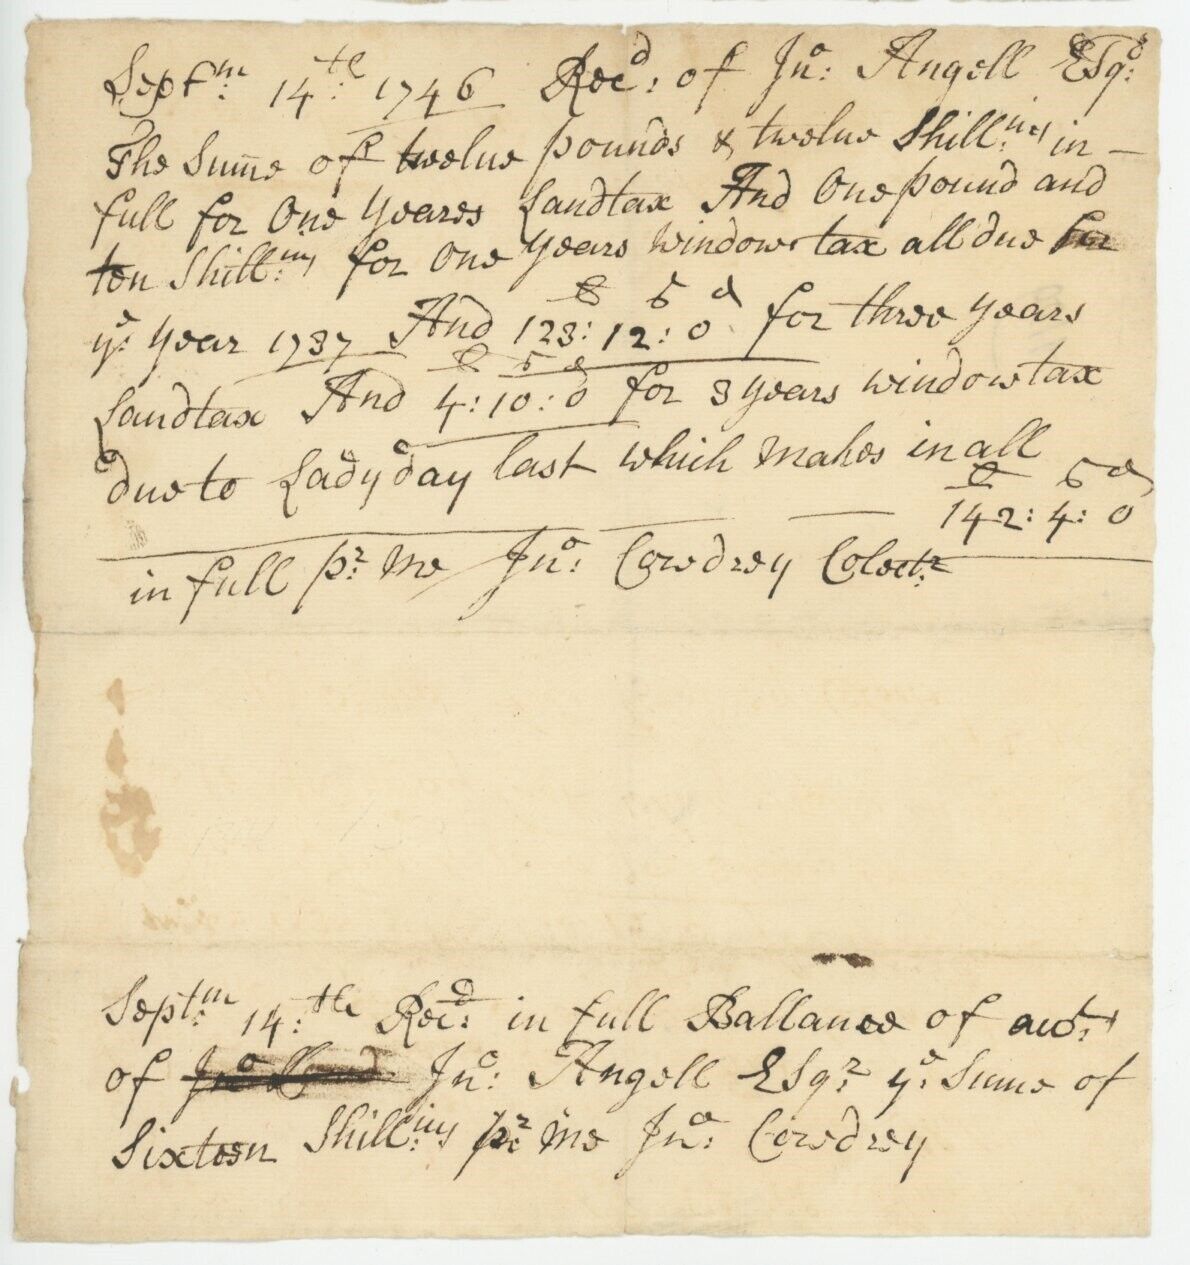 Septm: 14:th 1746 Recd: of Jno: Angell Esqr:
The Sume of twelve pounds & twelve Shill:ings in –
full for One Yeares Landtax And One pound and
ten Shill:ings for One Years Window tax all due for
ye: Year 1737 And £ 123: s 12: d 0 for three Years
Landtax And £ 4: s 10: d 0 for 3 Years Window tax
due to Lady day last which Makes in all
£ 142: s 4: d 0
in full pr: Me Jno: Cowdrey Colectr:
Septm: 14:th Recd: in full Ballance of acots:
of Jno Jno: Angell Esqr: ye: Sume of
Sixteen Shill:ings pr: Me Jno: Cowdrey